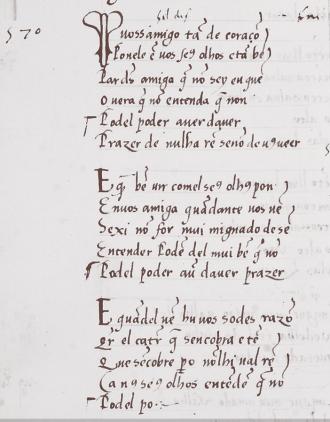 570
Vossamigo tã de coraçõ
Ponele ẽ vos seꝯ olhos e tã bẽ
Pardꝯ amiga q̃ nõ sey eu quẽ
O uera q̃ nõ entenda q̃ non
Podel poder auer dauer
Prazer de nulha rẽ senõ de uꝯ ueer
E q̃ bẽ uir comel seꝯ olhꝯ pon
En uos amiga quãdante uos uẽ
Se xi nõ for mui mĩguado de sẽ
Entender Pode del mui bẽ q̃ nõ
Podel poder auer dauer prazer
E quãdel uẽ hu uos sodes razõ
Qr el catr̃ q̃ sencobra e tẽ
Que sẽcobre po nõ lhi ual rẽ
Ca nꝯ seꝯ olhos entẽdẽ q̃ nõ
Podel po